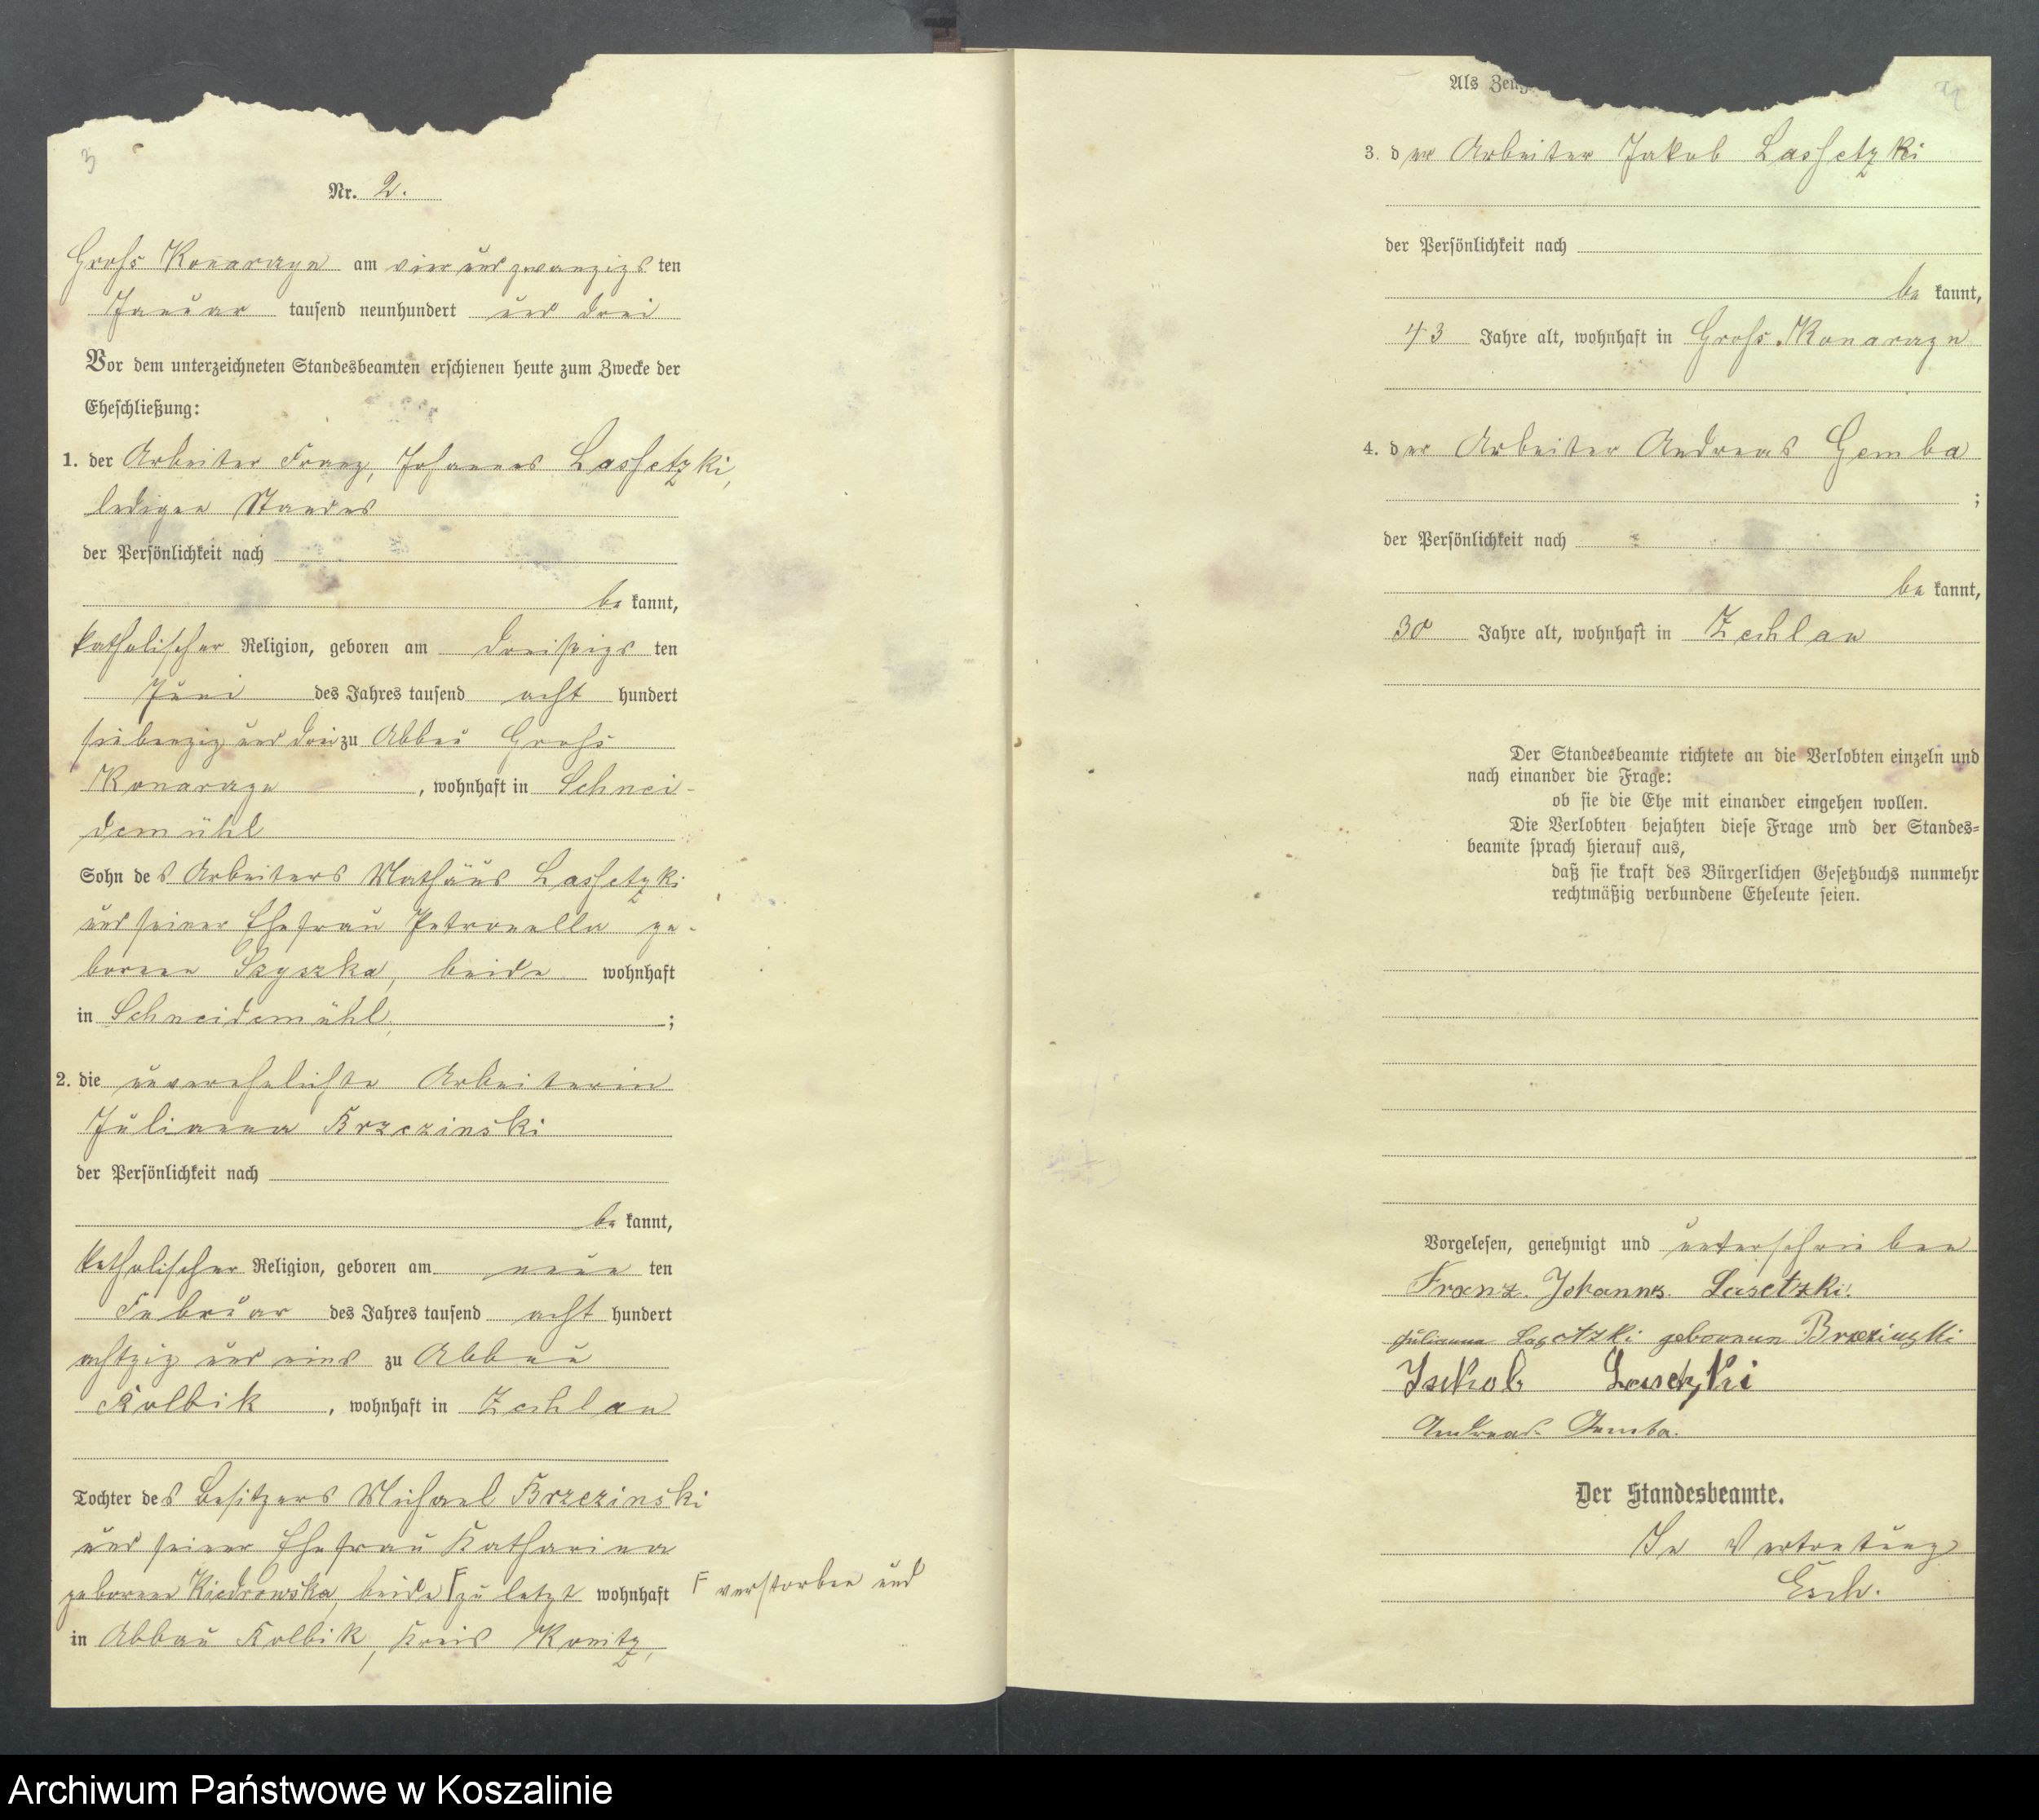 3
Nr. 2.
Groß Konarczyn am vier und zwanzigs ten
Januar tausend neunhundert und drei
Vor dem unterzeichneten Standesbeamten erschienen heute zum Zwecke der
Eheschließung:
1. der Arbeiter Franz, Johannes Lassetzki,
ledigen Standes
der Persönlichkeit nach
be kannt,
katholischer Religion, geboren am dreißigs ten
Juni des Jahres tausend acht hundert
siebenzig und drei zu Abbau Groß
Konarczyn, wohnhaft in Schnei-
demühl
Sohn des Arbeiters Mathäus Lassetzki
und seiner Ehefrau Petronella ge-
borene Szyszka, beide wohnhaft
in Schneidemühl;
2. die unverehelichte Arbeiterin
Julianna Brzezinski
der Persönlichkeit nach
be kannt,
katholischer Religion, geboren am neun ten
Februar des Jahres tausend acht hundert
achtzig und eins zu Abbau
Kolbik, wohnhaft in Zechlau
Tochter des Besitzers Michael Brzezinski
und seiner Ehefrau Katharina
geborene Kiedrowska, beide Γ zu letzt wohnhaft
Γ verstorben und
in Abbau Kolbik, Kreis Konitz,
Als Zeug
3. der Arbeiter Jakob Lassetzki
der Persönlichkeit nach
be kannt,
43 Jahre alt, wohnhaft in Groß Konarczyn
4. der Arbeiter Andreas Gemba
;
der Persönlichkeit nach
be kannt,
30 Jahre alt, wohnhaft in Zechlau
Der Standesbeamte richtete an die Verlobten einzeln und
nach einander die Frage:
ob sie die Ehe mit einander eingehen wollen.
Die Verlobten bejahten diese Frage und der Standes=
beamte sprach hierauf aus,
daß sie kraft des Bürgerlichen Gesetzbuchs nunmehr
rechtmäßig verbundene Eheleute seien.
Vorgelesen, genehmigt und unterschrieben
Franz. Johannes. Lasetzki.
Julianna Lasetzki geborenen Brzezinski
Jakob Lasetzki
Andreas Gemba.
Der Standesbeamte.
In Vertretung
Esch.
Archiwum Państwowe w Koszalinie